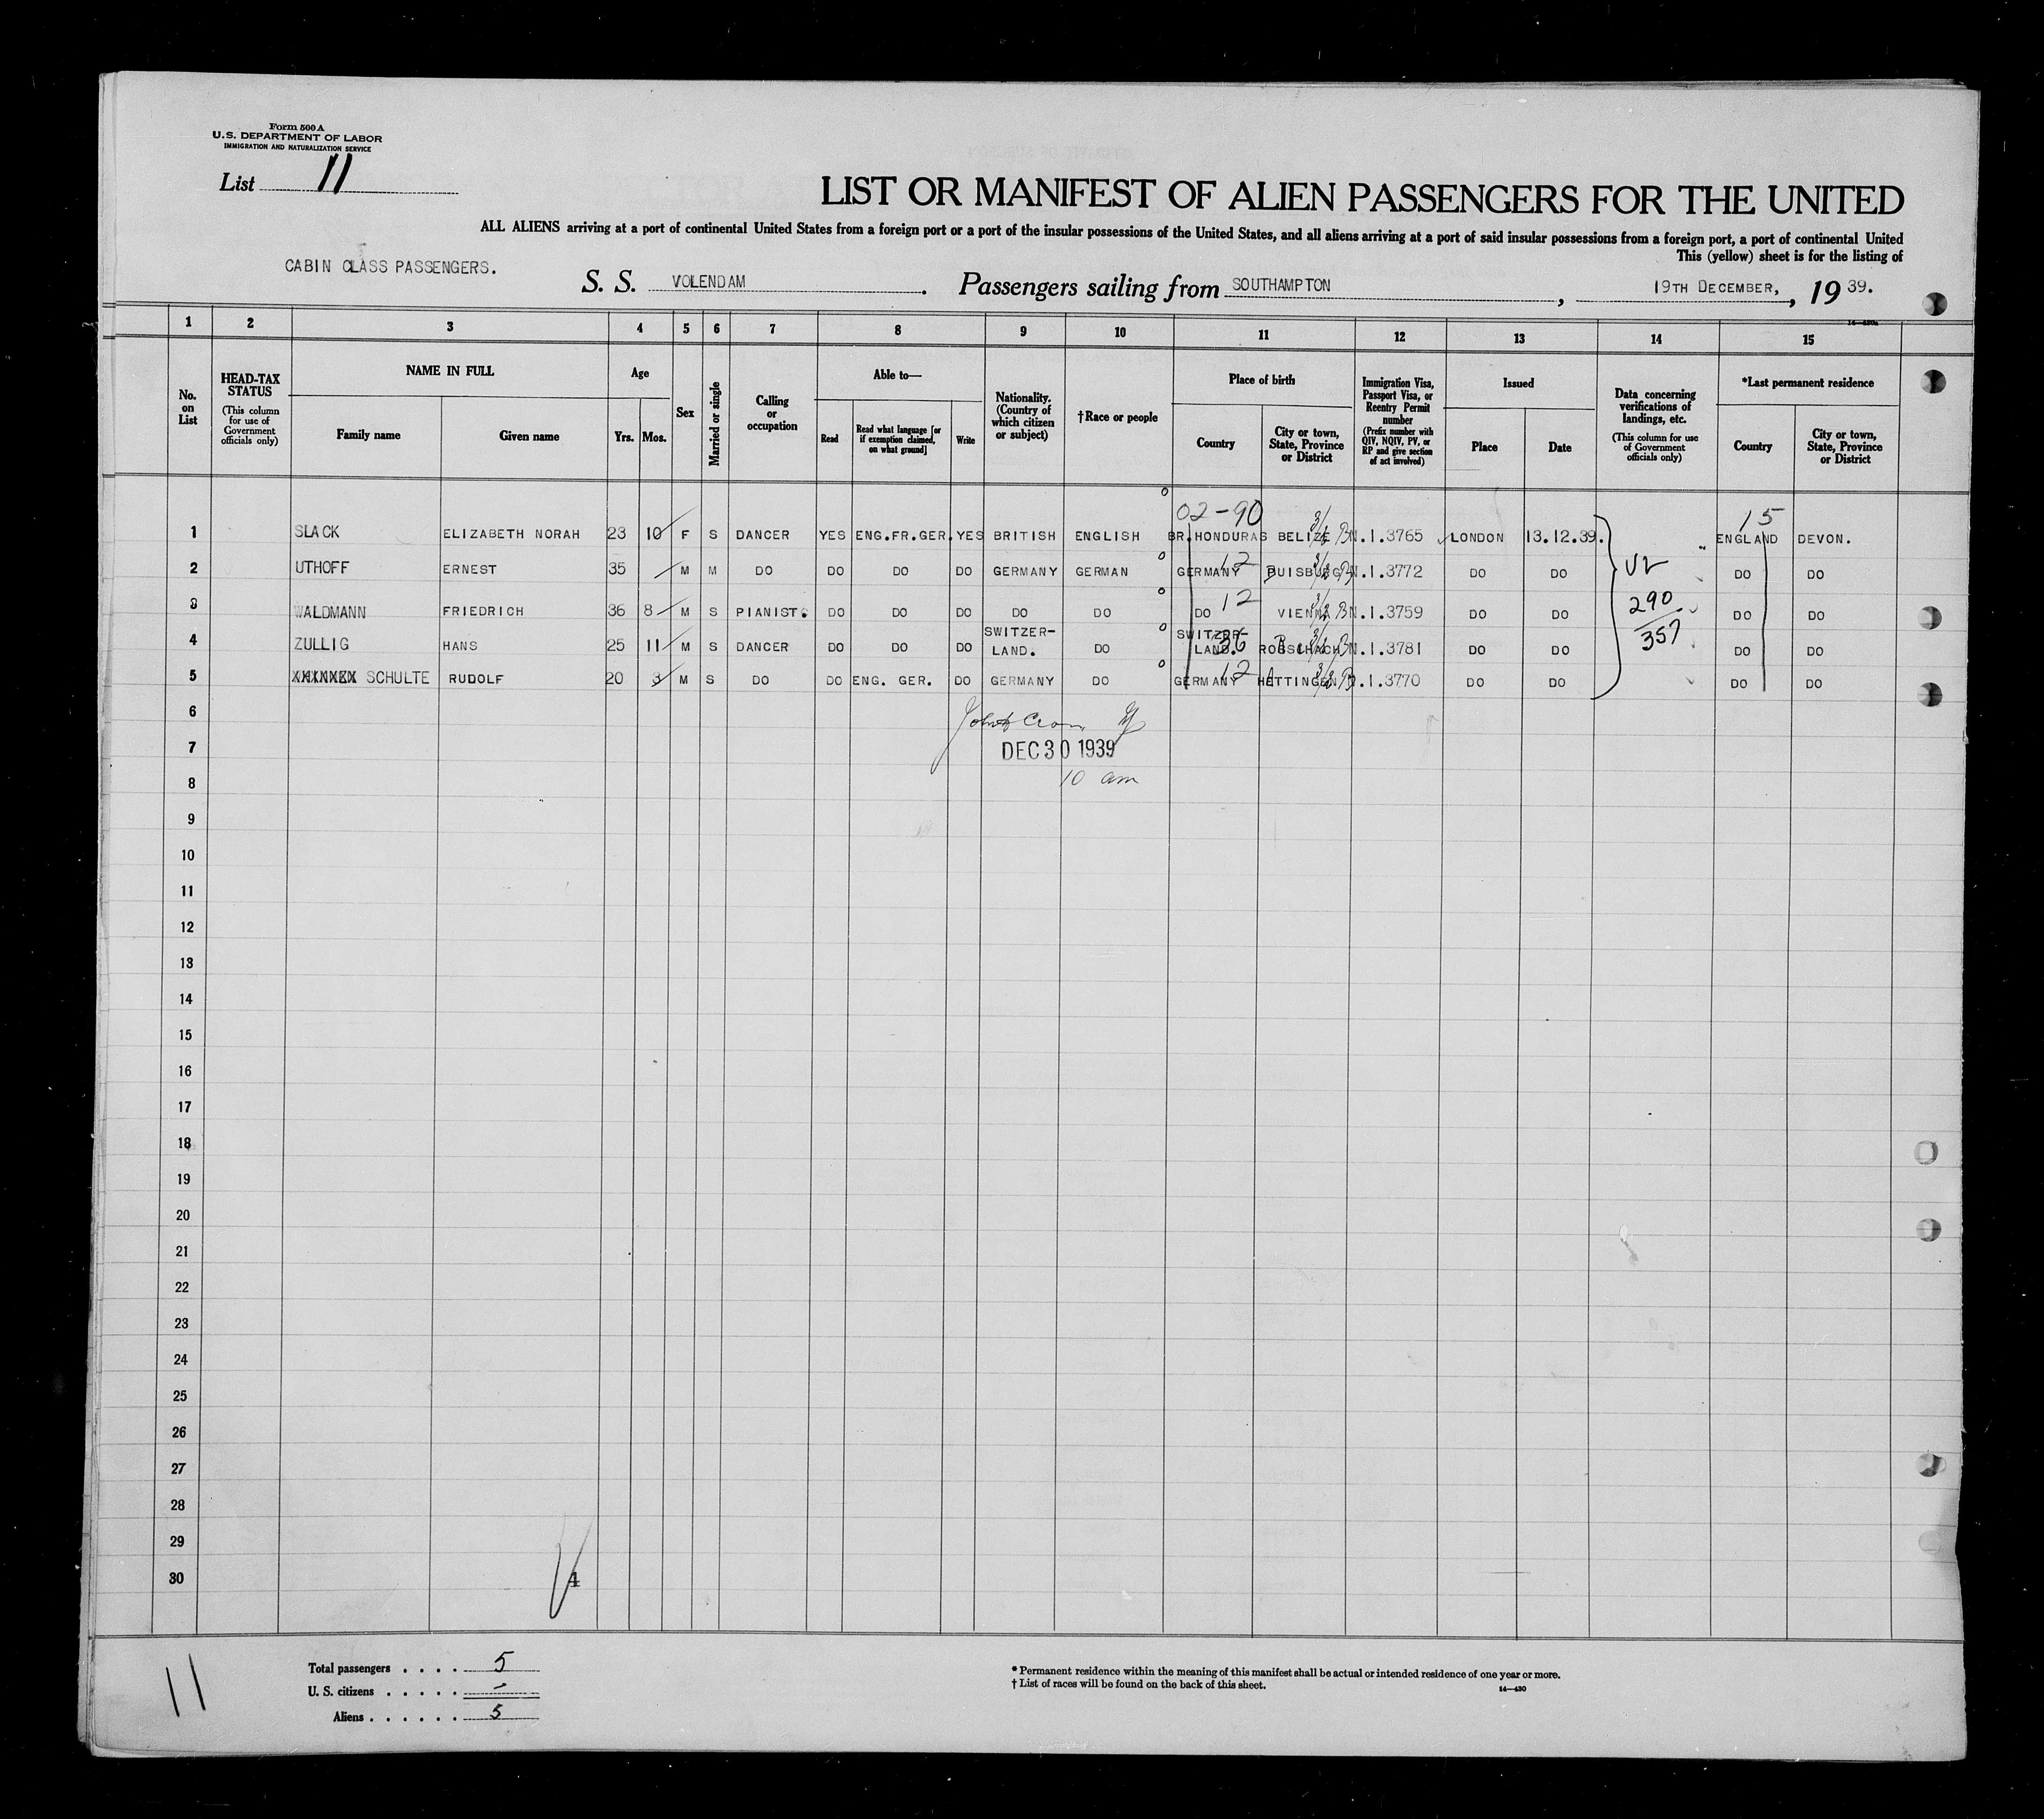 Form 500 A
U.S. DEPARTMENT OF LABOR
IMMIGRATION AND NATURALIZATION SERVICE
List 11
LIST OR MANIFEST OF ALIEN PASSENGERS FOR THE UNITED
ALL ALIENS arriving at a port of continental United States from a foreign port or a port of the insular possessions of the United States, and all aliens arriving at a port of said insular possessions from a foreign port, a port of continental United
This (yellow) sheet is for the listing of
CABIN CLASS PASSENGERS.
S. S. VOLENDAM. Passengers sailing from SOUTHAMPTON, 19TH DECEMBER, 19 39.
1 2 3 4 5 6 7 8 9 10 11 12 13 14 15
No. on List
HEAD-TAX STATUS (This column for use of Government officials only)
NAME IN FULL
Family name Given name
Age
Yrs. Mos.
Sex
Married or single
Calling or occupation
Able to—
Read
Read what language [or if exemption claimed, on what ground]
Write
Nationality. (Country of which citizen or subject)
†Race or people
Place of birth
Country
City or town, State, Province or District
Immigration Visa, Passport Visa, or Reentry Permit number (Prefix number with QIV, NQIV, PV, or RP and give section of act involved)
Issued
Place Date
Data concerning verifications of landings, etc. (This column for use of Government officials only)
*Last permanent residence
Country
City or town, State, Province or District
02-90 15
1 SLACK ELIZABETH NORAH 23 10 F S DANCER YES ENG.FR.GER. YES BRITISH ENGLISH BR.HONDURAS BELIZE N.I.3765 LONDON 13.12.39. ENGLAND DEVON.
2 UTHOFF ERNEST 35 M M DO DO DO DO GERMANY GERMAN GERMANY 12 DUISBURG N.I.3772 DO DO DO DO
3 WALDMANN FRIEDRICH 36 8 M S PIANIST. DO DO DO DO DO DO 12 VIENNA N.I.3759 DO DO 290 DO DO
4 ZULLIG HANS 25 11 M S DANCER DO DO DO SWITZER-LAND. DO SWITZER-LAND. 36 RORSCHACH N.I.3781 DO DO 357 DO DO
5 SCHULTE RUDOLF 20 3 M S DO DO ENG. GER. DO GERMANY DO GERMANY 12 HETTINGEN N.I.3770 DO DO DO DO
6
7 DEC 30 1939
8 10 am
9
10
11
12
13
14
15
16
17
18
19
20
21
22
23
24
25
26
27
28
29
30
11
Total passengers . . . . 5
U. S. citizens . . . . . -
Aliens . . . . . . 5
* Permanent residence within the meaning of this manifest shall be actual or intended residence of one year or more.
† List of races will be found on the back of this sheet.
14—430